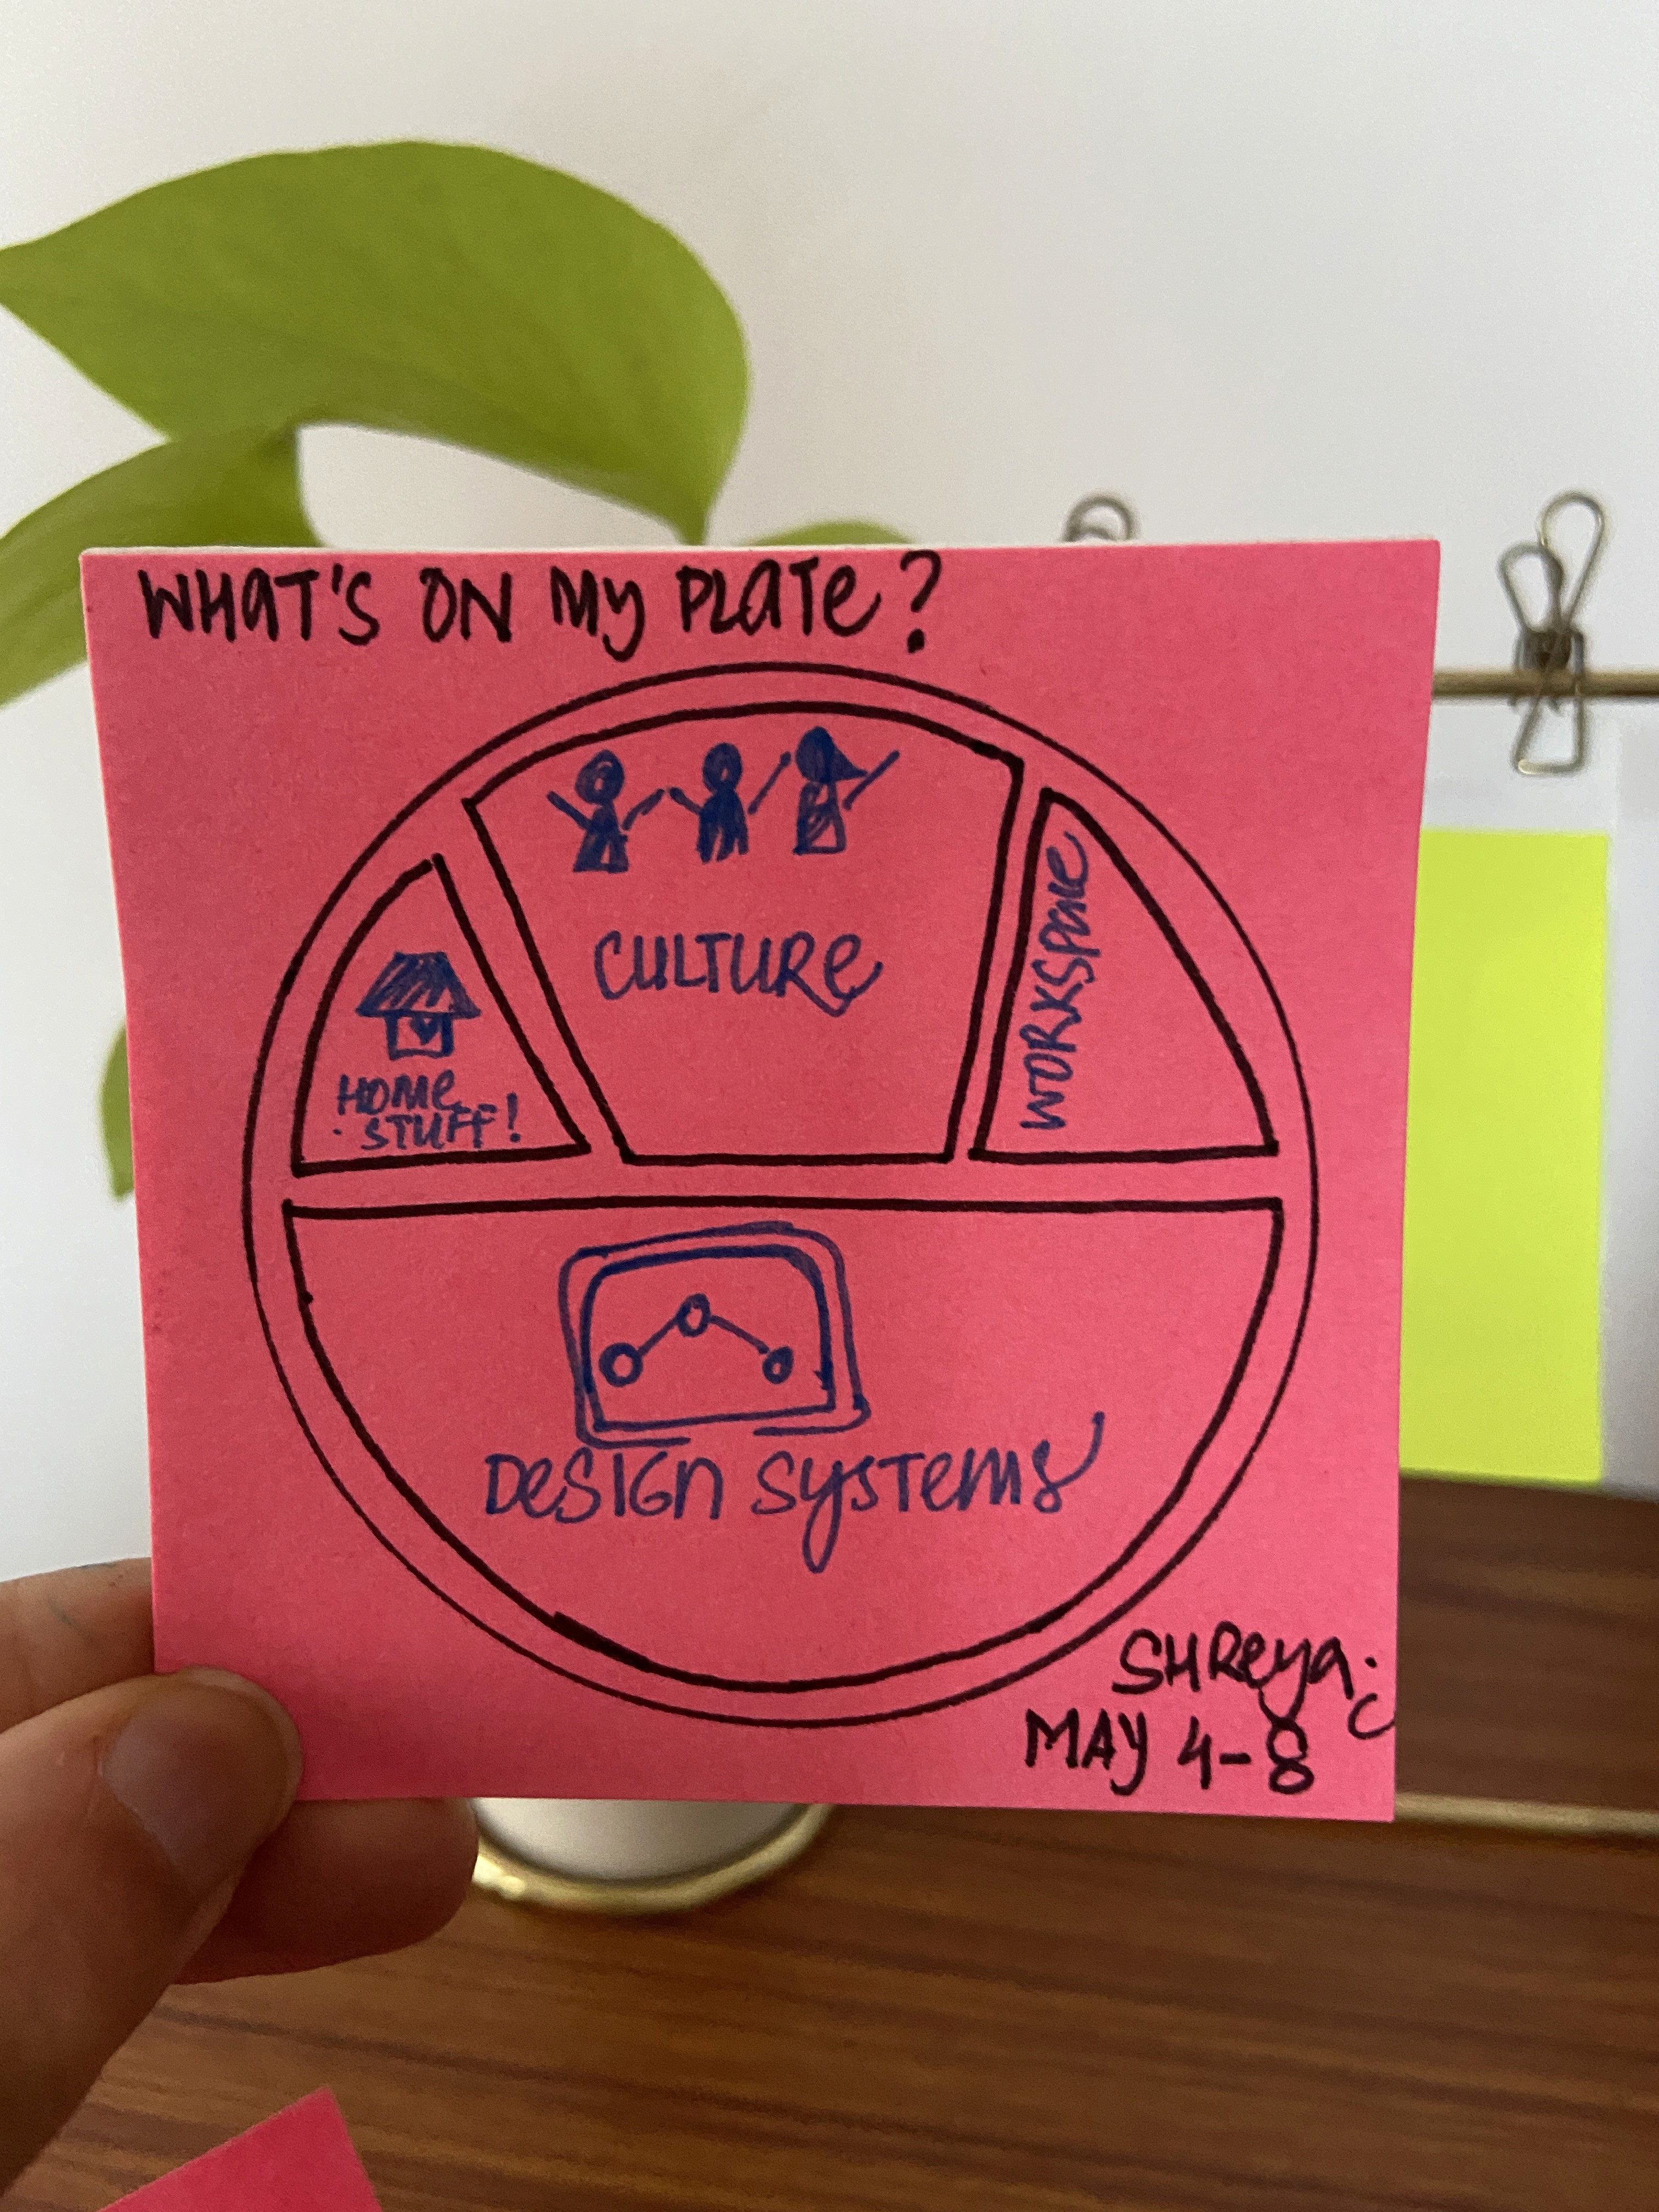 WHAT'S ON MY PLATE?
CULTURE
WORKSPACE
HOME
STUFF!
DESIGN SYSTEMS
SHREYA.C
MAY 4-8